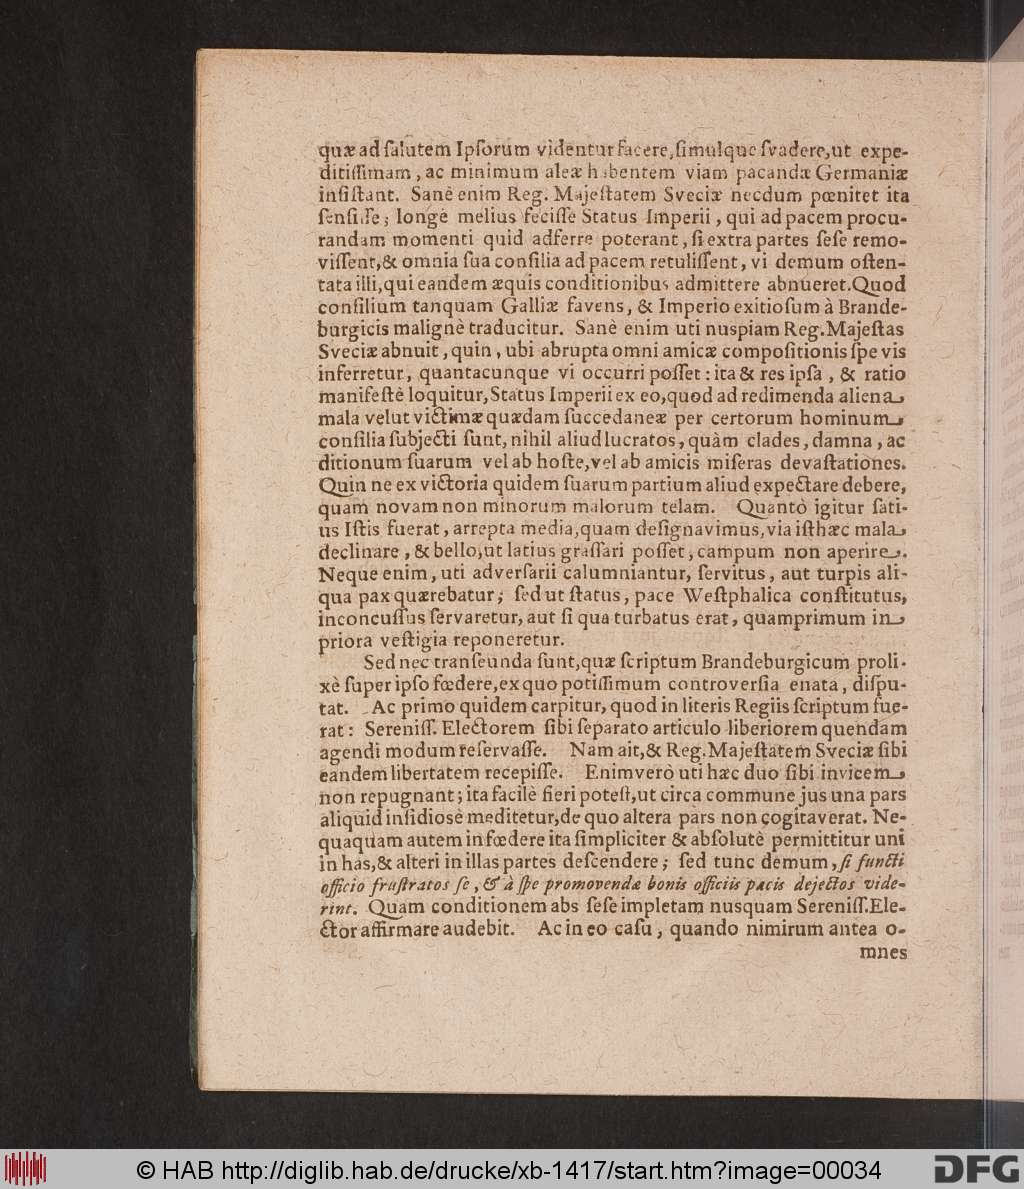 quæ ad ſalutem Ipſorum videntur facere, ſimulque ſvadere, ut expe-
ditiſſimam, ac minimum aleæ habentem viam pacandæ Germaniæ
inſiſtant. Sanè enim Reg. Majeſtatem Sveciæ necdum pœnitet ita
ſenſiſſe; longè melius feciſſe Status Imperii, qui ad pacem procu-
randam momenti quid adferre poterant, ſi extra partes ſeſe remo-
viſſent, & omnia ſua conſilia ad pacem retuliſſent, vi demum oſten-
tata illi, qui eandem æquis conditionibus admittere abnueret. Quod
conſilium tanquam Galliæ favens, & Imperio exitioſum à Brande-
burgicis malignè traducitur. Sanè enim uti nuspiam Reg. Majeſtas
Sveciæ abnuit, quin, ubi abrupta omni amicæ compoſitionis ſpe vis
inferretur, quantacunque vi occurri poſſet: ita & res ipſa, & ratio
manifeſtè loquitur, Status Imperii ex eo, quod ad redimenda aliena
mala velut victimæ quædam ſuccedaneæ per certorum hominum
conſilia ſubjecti ſunt, nihil aliud lucratos, quàm clades, damna, ac
ditionum ſuarum vel ab hoſte, vel ab amicis miſeras devaſtationes.
Quin ne ex victoria quidem ſuarum partium aliud expectare debere,
quam novam non minorum malorum telam. Quantò igitur ſati-
us Iſtis fuerat, arrepta media, quam deſignavimus, via iſthæc mala
declinare, & bello, ut latius graſſari poſſet, campum non aperire.
Neque enim, uti adverſarii calumniantur, ſervitus, aut turpis ali-
qua pax quærebatur; ſed ut ſtatus, pace Weſtphalica conſtitutus,
inconcuſſus ſervaretur, aut ſi qua turbatus erat, quamprimum in
priora veſtigia reponeretur.
Sed nec tranſeunda ſunt, quæ ſcriptum Brandeburgicum proli-
xè ſuper ipſo fœdere, ex quo potiſſimum controverſia enata, diſpu-
tat. Ac primo quidem carpitur, quod in literis Regiis ſcriptum fue-
rat: Sereniſſ. Electorem ſibi ſeparato articulo liberiorem quendam
agendi modum reſervaſſe. Nam ait, & Reg. Majeſtatem Sveciæ ſibi
eandem libertatem recepiſſe. Enimverò uti hæc duo ſibi invicem
non repugnant; ita facilè fieri poteſt, ut circa commune jus una pars
aliquid inſidiosè meditetur, de quo altera pars non cogitaverat. Ne-
quaquam autem in fœdere ita ſimpliciter & abſolutè permittitur uni
in has, & alteri in illas partes deſcendere; ſed tunc demum, ſi functi
officio fruſtratos ſe, & à ſpe promovendæ bonis officiis pacis dejectos vide-
rint. Quam conditionem abs ſeſe impletam nusquam Sereniſſ. Ele-
ctor affirmare audebit. Ac in eo caſu, quando nimirum antea o-
mnes
© HAB http://diglib.hab.de/drucke/xb-1417/start.htm?image=00034
DFG